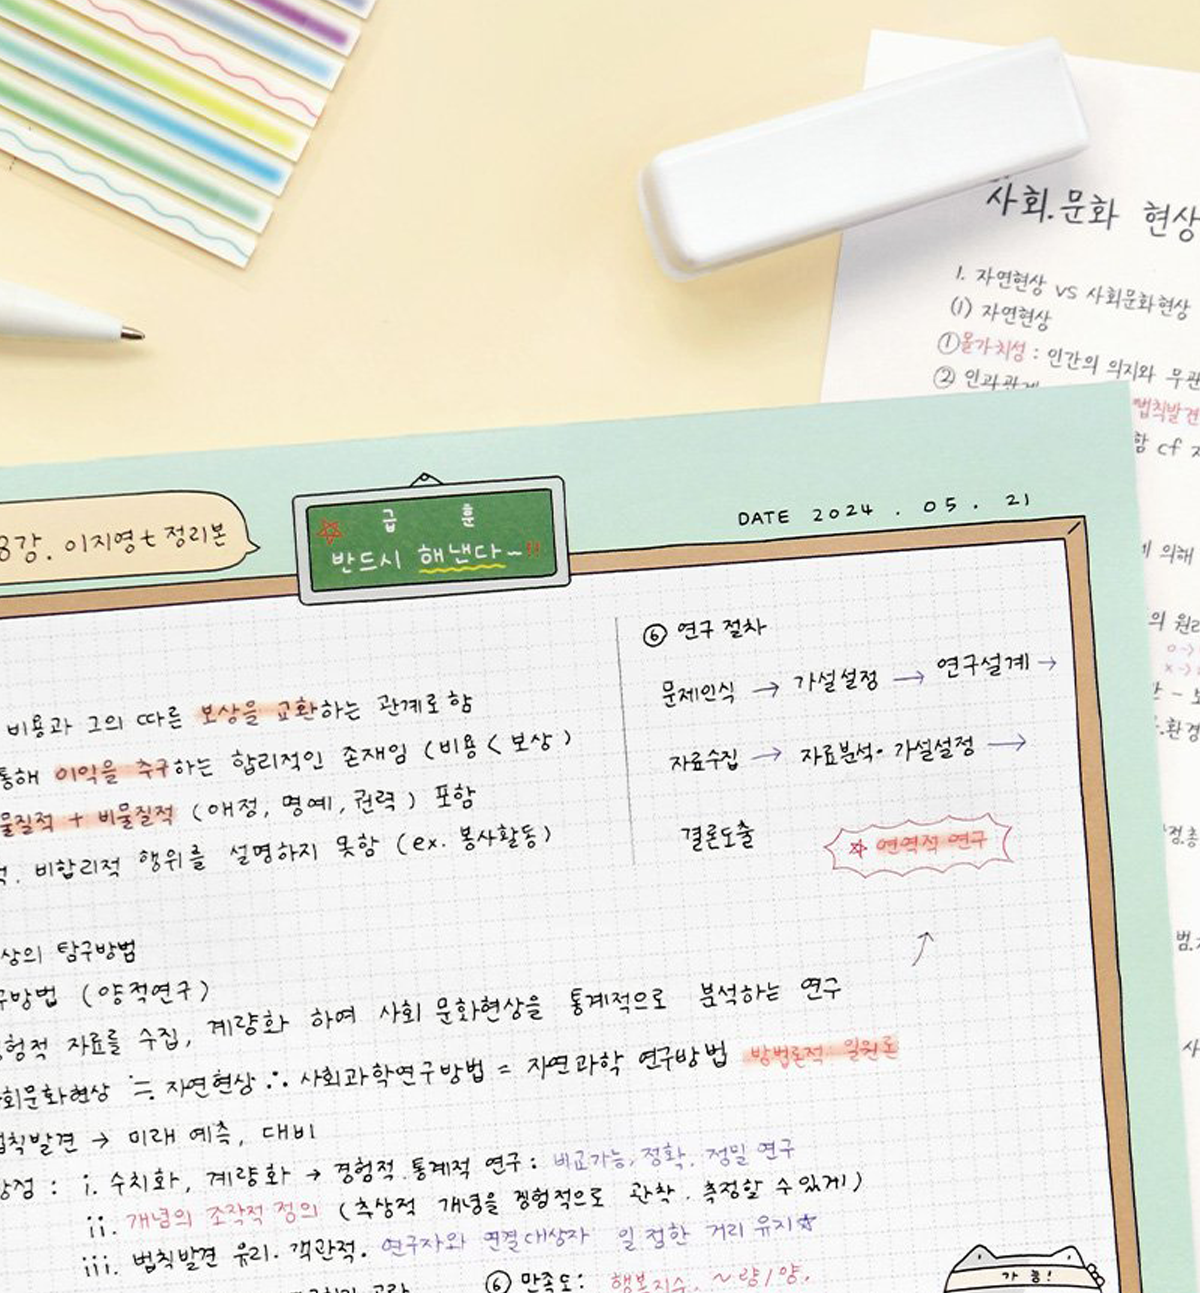 사회.문화 현상
1. 자연현상 vs 사회문화현상
(1) 자연현상
①몰가치성 : 인간의 의지와 무관
② 인과관계
법칙발견
함 cf
에 의해
의 원리
0→
x→
.환경
8강. 이지영t 정리본
급 훈
반드시 해낸다~!!
DATE 2024 . 05 . 21
비용과 그의 따른 보상을 교환하는 관계로 함
통해 이익을 추구하는 합리적인 존재임 (비용 < 보상)
물질적 + 비물질적 (애정, 명예, 권력) 포함
비합리적 행위를 설명하지 못함 (ex. 봉사활동)
⑥ 연구 절차
문제인식 → 가설설정 → 연구설계 →
자료수집 → 자료분석· 가설설정 →
결론도출
☆ 연역적 연구
상의 탐구방법
구방법 (양적연구)
험적 자료를 수집, 계량화 하여 사회 문화현상을 통계적으로 분석하는 연구
회문화현상 ≒ 자연현상 ∴ 사회과학연구방법 = 자연과학 연구방법 방법론적 일원론
법칙발견 → 미래 예측, 대비
장점 : i. 수치화, 계량화 → 경험적.통계적 연구: 비교가능, 정확. 정밀 연구
ii. 개념의 조작적 정의 (추상적 개념을 경험적으로 관착. 측정할 수 있게)
iii. 법칙발견 유리. 객관적. 연구자와 연결대상자 일정한 거리 유지☆
⑥ 만족도: 행복지수, ~량/양.
가 릉!